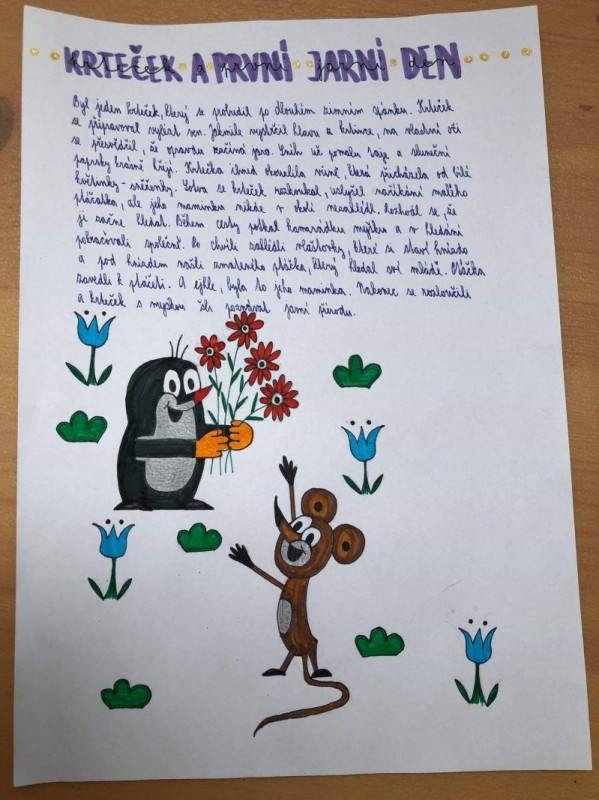 KRTEČEK A PRVNÍ JARNÍ DEN
krteček a první jarní den
Byl jeden krteček, který se probudil po dlouhém zimním spánku. Krteček
se připravoval vylézt ven. Jakmile vystrčil hlavu z krtince, na vlastní oči
se přesvědčil, že opravdu začíná jaro. Sníh už pomalu taje a sluneční
paprsky krásně hřejí. Krtečka ihned okouzlila vůně, která přicházela od bílé
květinky - sněženky. Sotva se krteček rozkoukal, uslyšel naříkání malého
ptáčátka, ale jeho maminku nikde v okolí neviděl. Rozhodl se, že
ji začne hledat. Během cesty potkal kamarádku myšku a v hledání
pokračovali společně. Po chvíli zahlédli vlaštovky, které si staví hnízdo
a pod hnízdem našli zmateného ptáčka, který hledal své mládě. Ptáčka
zavedli k ptáčeti. A ejhle, byla to jeho maminka. Nakonec se rozloučili
a krteček s myškou šli poznávat jarní přírodu.